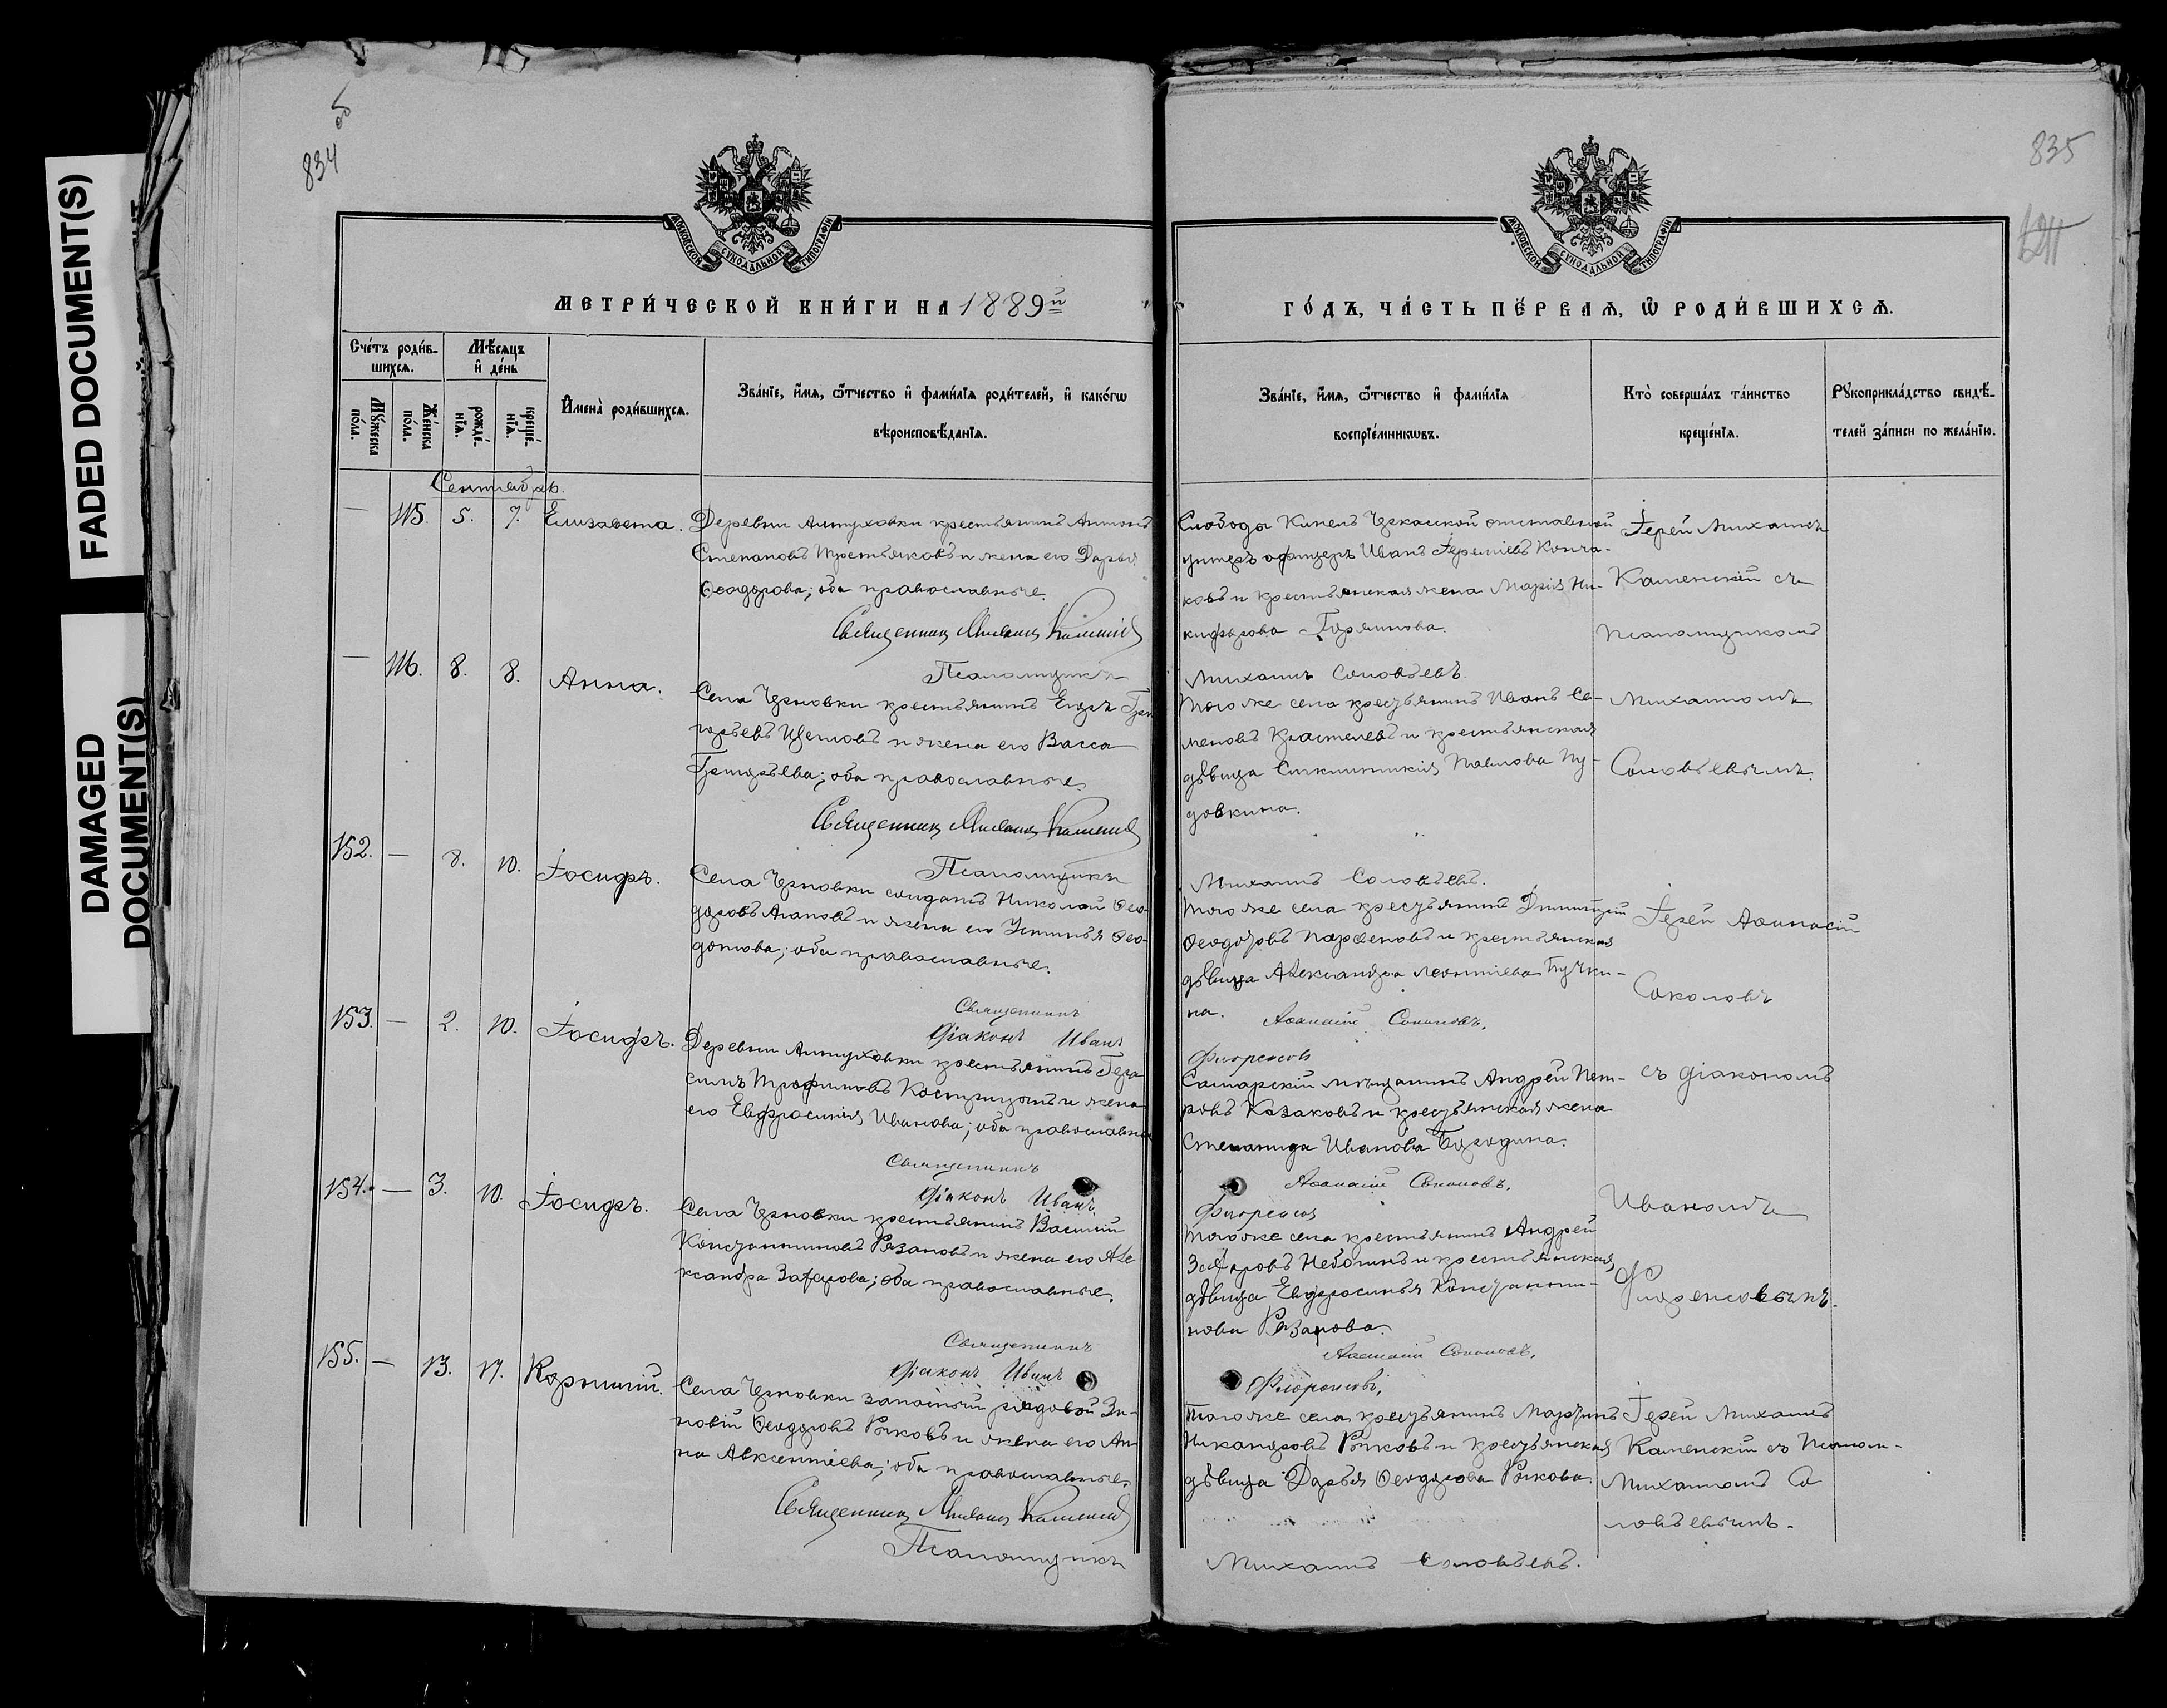 FADED DOCUMENT(S)
DAMAGED
DOCUMENT(S)
834
835
МОСКОВСКОЙ СѴНОДАЛЬНОЙ ТИПОГРАФІИ
МОСКОВСКОЙ СѴНОДАЛЬНОЙ ТИПОГРАФІИ
МЕТРИ́ЧЕСКОЙ КНИ́ГИ НА 1889й
ГО́ДЪ, ЧА́СТЬ ПЕ́РВАѦ, Ѡ РОДИ́ВШИХСѦ.
Сче́тъ роди́в-
шихсѧ.
Мѣ́сѧцъ
и҆ де́нь
Мꙋ́жеска
по́ла.
Же́нска
по́ла.
рожде́-
нїѧ.
креще́-
нїѧ.
И҆мена̀ роди́вшихсѧ.
Зва́нїе, и҆́мѧ, ѻ҆́тчество и҆ фами́лїѧ роди́телей, и҆ како́гѡ
вѣроисповѣ́данїѧ.
Зва́нїе, и҆́мѧ, ѻ҆́тчество и҆ фами́лїѧ
воспрїе́мникѡвъ.
Кто̀ соверша́лъ та́инство
креще́нїѧ.
Рꙋкоприкла́дство свидѣ́-
телей за́писи по жела́нїю.
Сентябрь.
— 115. 5. 7. Елизавета.
Деревни Алтуховки крестьянинъ Антонъ
Степановъ Третьяковъ и жена его Дарья
Ѳеодорова; оба православные.
Священникъ Михаилъ Каменскій
Псаломщикъ
Слободы Кинель Черкасской отставной
унтеръ офицеръ Иванъ Іереміевъ Конча-
ковъ и крестьянская жена Марія Ни-
кифорова Горяинова.
Михаилъ Соловьевъ.
Іерей Михаилъ
Каменскій съ
псаломщикомъ
Михаиломъ
Соловьевымъ.
— 116. 8. 8. Анна.
Села Черновки крестьянинъ Егоръ Гри-
горьевъ Щегловъ и жена его Васса
Григорьева; оба православные.
Священникъ Михаилъ Каменскій
Псаломщикъ
Того же села крестьянинъ Иванъ Се-
меновъ и крестьянская
дѣвица Синклитикія Павлова Пу-
довкина.
Михаилъ Соловьевъ.
152. — 8. 10. Іосифъ.
Села Черновки солдатъ Николай Ѳео-
доровъ Агаповъ и жена его Устинья Ѳео-
дотова; оба православные.
Священникъ
Діаконъ Иванъ
Того же села крестьянинъ Димитрій
Ѳеодоровъ Парѳеновъ и крестьянская
дѣвица Александра Леонтіева Бучки-
на.
Аѳанасій Соколовъ.
Флоренсовъ
Іерей Аѳанасій
Соколовъ
съ діакономъ
Иваномъ
Флоренсовымъ.
153. — 2. 10. Іосифъ.
Деревни Алтуховки крестьянинъ Гера-
симъ Трофимовъ Кострицынъ и жена
его Евфросинія Иванова; оба православные
Священникъ
Діаконъ Иванъ
Самарскій мѣщанинъ Андрей Пет-
ровъ Казаковъ и крестьянская жена
Степанида Иванова Бородина.
Аѳанасій Соколовъ.
Флоренсовъ
154. — 3. 10. Іосифъ.
Села Черновки крестьянинъ Василій
Константиновъ Рязановъ и жена его Але-
ксандра Захарова; оба православные.
Священникъ
Діаконъ Иванъ
Того же села крестьянинъ Андрей
Захаровъ и крестьянская
дѣвица Евфросинья Константи-
нова Рязанова.
Аѳанасій Соколовъ.
Флоренсовъ.
155. — 13. 17. Корнилій.
Села Черновки запасный рядовой Зи-
новій Ѳеодоровъ Рыковъ и жена его Ан-
на Авксентіева; оба православные.
Священникъ Михаилъ Каменскій
Псаломщикъ
Того же села крестьянинъ Мартинъ
Никандровъ Рыковъ и крестьянская
дѣвица Дарья Ѳеодорова Рыкова.
Михаилъ Соловьевъ.
Іерей Михаилъ
Каменскій съ Псалом-
Михаиломъ Со
ловьевымъ.